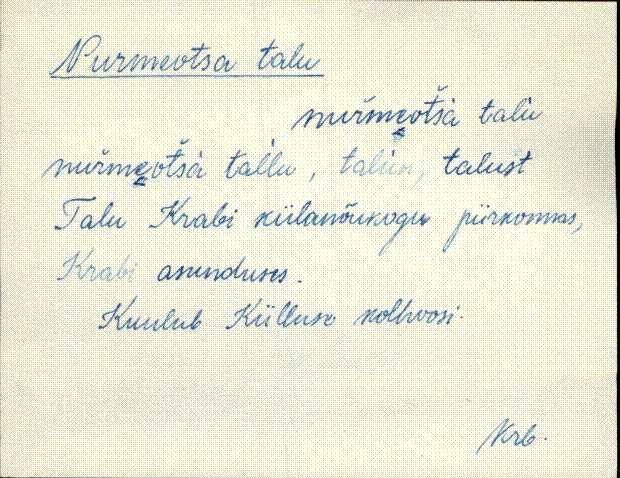 Nurmeotsa talu
nuŕmeotśa talu
nuŕmeotśa tallu, talun, talust
Talu Krabi külanõukogu piirkonnas,
Krabi asunduses.
Kuulub Külluse kolhoosi.
Krb.